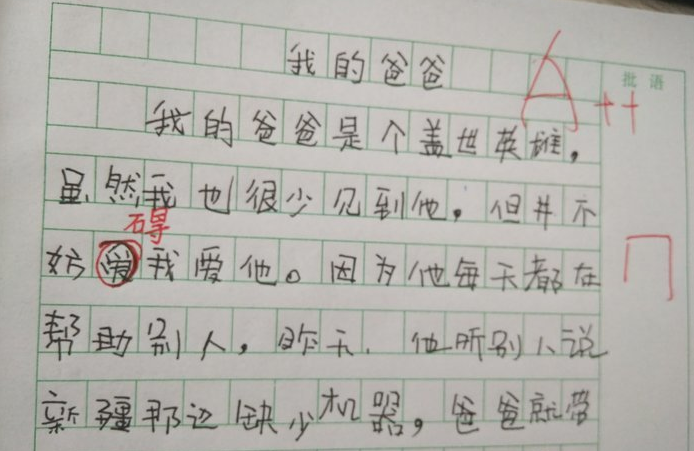 我的爸爸
A++
批语
我的爸爸是个盖世英雄，
虽然我也很少见到他，但并不
碍
妨爱我爱他。因为他每天都在
帮助别人，昨天，他听别人说
新疆那边缺少机器，爸爸就带